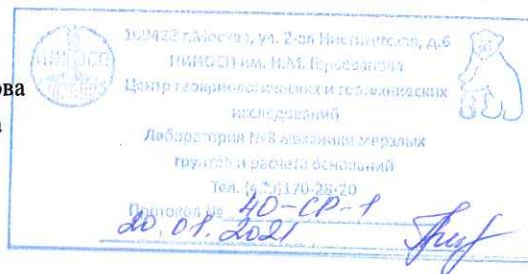 109428 г.Москва, ул. 2-ая Институтская, д.6
НИИОСП им. Н.М. Герсеванова
Центр геокриологических и геотехнических
исследований
Лаборатория №8 механики мерзлых
грунтов и расчета оснований
Тел. 170-28-20
Протокол № 40-СР-1
20.01.2021
НИИОСП
ова
а